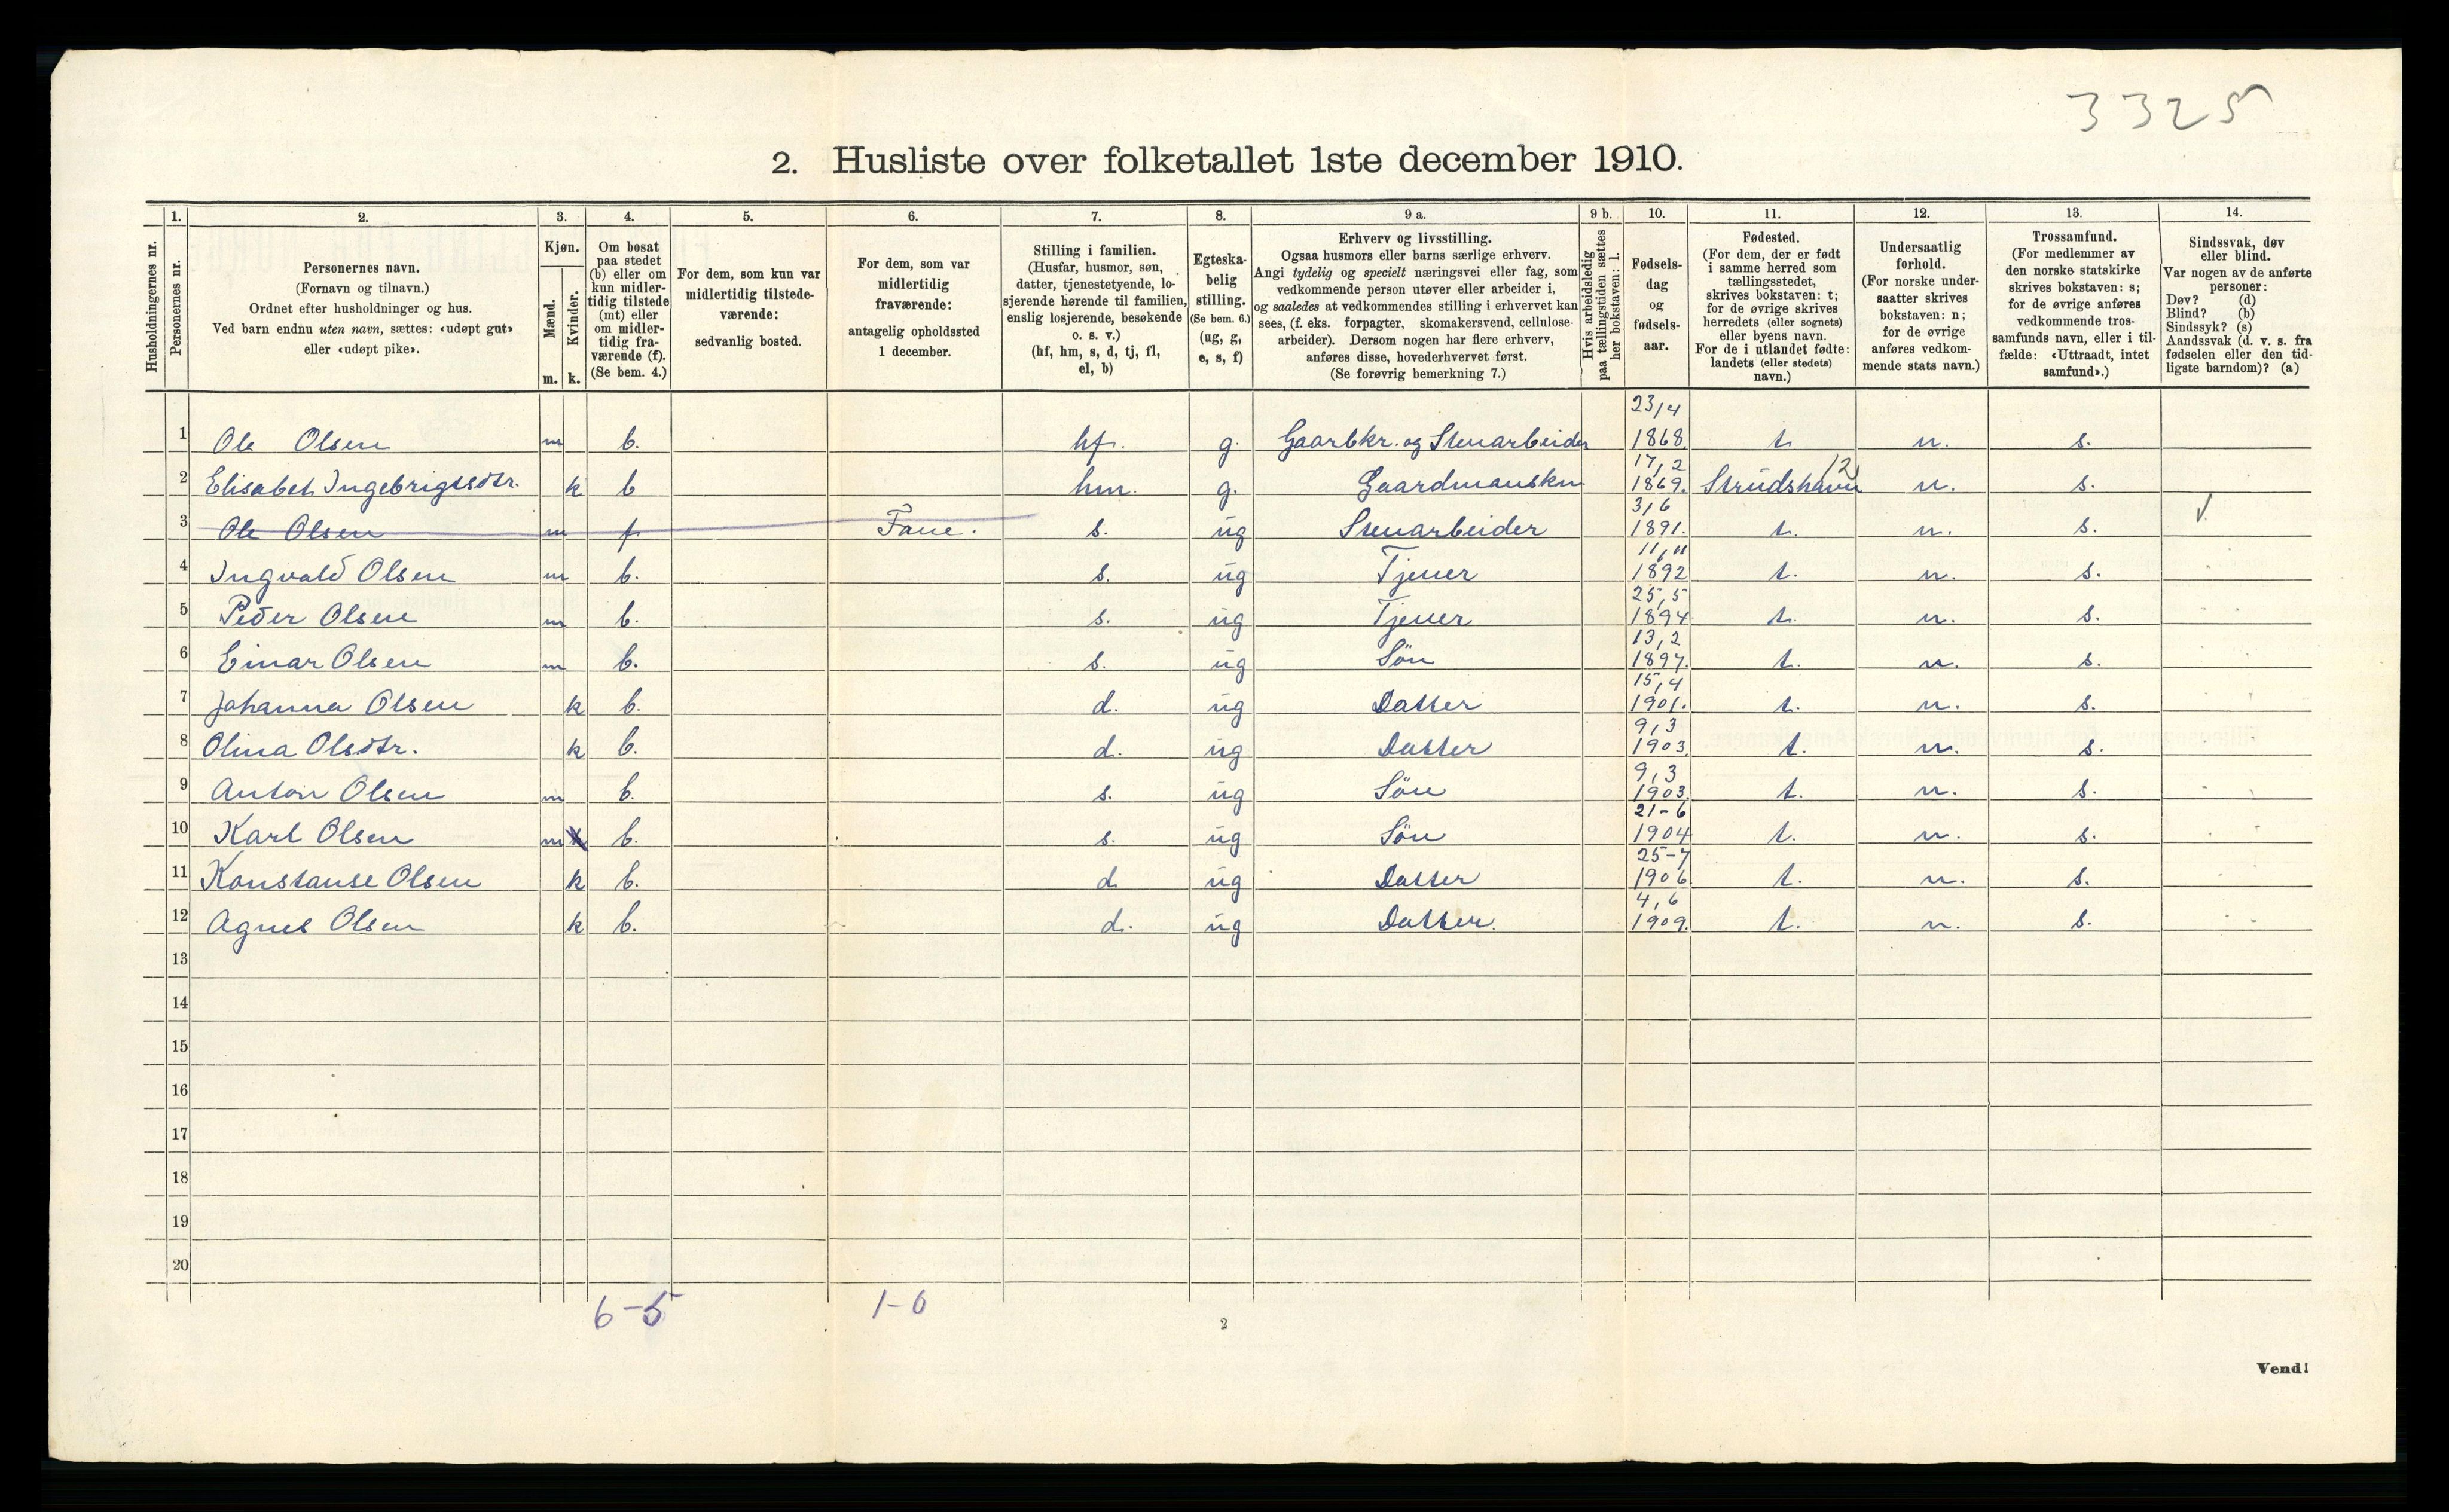 3325
2. Husliste over folketallet 1ste december 1910.
1. 2. 3. 4. 5. 6. 7. 8. 9 a. 9 b. 10. 11. 12. 13. 14.
Husholdningernes nr.
Personernes nr.
Personernes navn.
(Fornavn og tilnavn.)
Ordnet efter husholdninger og hus.
Ved barn endnu uten navn, sættes: «udøpt gut»
eller «udøpt pike».
Kjøn.
Mænd.
Kvinder.
m. k.
Om bosat
paa stedet
(b) eller om
kun midler-
tidig tilstede
(mt) eller
om midler-
tidig fra-
værende (f).
(Se bem. 4.)
For dem, som kun var
midlertidig tilstede-
værende:
sedvanlig bosted.
For dem, som var
midlertidig
fraværende:
antagelig opholdssted
1 december.
Stilling i familien.
(Husfar, husmor, søn,
datter, tjenestetyende, lo-
sjerende hørende til familien,
enslig losjerende, besøkende
o. s. v.)
(hf, hm, s, d, tj, fl,
el, b)
Egteska-
belig
stilling.
(Se bem. 6.)
(ug, g,
e, s, f)
Erhverv og livsstilling.
Ogsaa husmors eller barns særlige erhverv.
Angi tydelig og specielt næringsvei eller fag, som
vedkommende person utøver eller arbeider i,
og saaledes at vedkommendes stilling i erhvervet kan
sees, (f. eks. forpagter, skomakersvend, cellulose-
arbeider). Dersom nogen har flere erhverv,
anføres disse, hovederhvervet først.
(Se forøvrig bemerkning 7.)
Hvis arbeidsledig
paa tællingstiden sættes
her bokstaven: l.
Fødsels-
dag
og
fødsels-
aar.
Fødested.
(For dem, der er født
i samme herred som
tællingsstedet,
skrives bokstaven: t;
for de øvrige skrives
herredets (eller sognets)
eller byens navn.
For de i utlandet fødte:
landets (eller stedets)
navn.)
Undersaatlig
forhold.
(For norske under-
saatter skrives
bokstaven: n;
for de øvrige
anføres vedkom-
mende stats navn.)
Trossamfund.
(For medlemmer av
den norske statskirke
skrives bokstaven: s;
for de øvrige anføres
vedkommende tros-
samfunds navn, eller i til-
fælde: «Uttraadt, intet
samfund».)
Sindssvak, døv
eller blind.
Var nogen av de anførte
personer:
Døv? (d)
Blind? (b)
Sindssyk? (s)
Aandssvak (d. v. s. fra
fødselen eller den tid-
ligste barndom)? (a)
1 Ole Olsen m b. hf. g. Gaarbkr. og Stenarbeider 23/4 1868 t. n. s.
2 Elisabet Ingebrigtsdtr. k b hm. g. Gaardmanskn 17,2 1869. Strudshavn (2) n. s.
3 Ole Olsen m f Fane. s. ug Stenarbeider 3,6 1891. t. n. s. v.
4 Ingvald Olsen m b. s. ug Tjener 11,11 1892 t. n. s.
5 Peder Olsen m b. s. ug Tjener 25,5 1894 t. n. s.
6 Einar Olsen m b. s. ug Sön 13,2 1897. t. n. s.
7 Johanna Olsen k b. d. ug Datter 15,4 1901. t. n. s.
8 Olina Olsdtr. k b. d. ug Datter 9,3 1903. t. n. s.
9 Anton Olsen m b. s. ug Sön 9,3 1903. t. n. s.
10 Karl Olsen m k b. s. ug Sön 21-6 1904 t. n. s.
11 Konstanse Olsen k b. d. ug Datter 25-7 1906 t. n. s.
12 Agnes Olsen k b. d. ug Datter. 4,6 1909. t. n. s.
13
14
15
16
17
18
19
20
6-5 1-0
2
Vend!